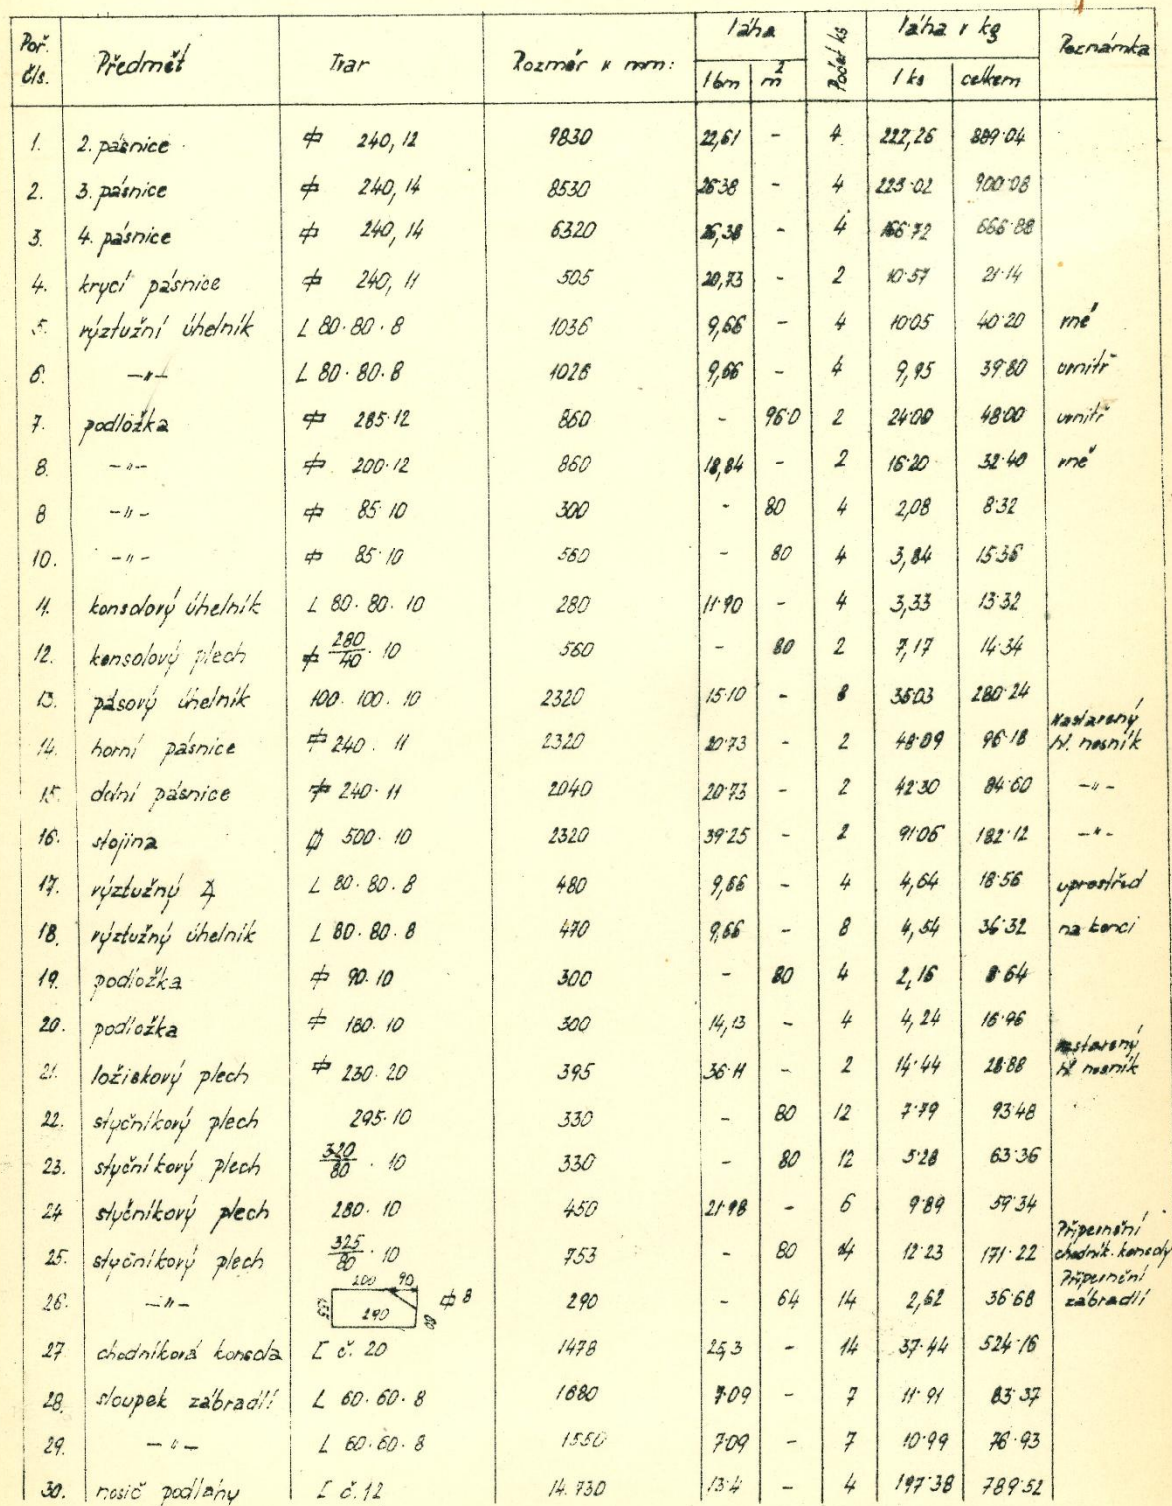 Poř. čís. Předmět Tvar Rozměr v mm: Váha Počet ks Váha v kg Poznámka
1 bm m² 1 ks celkem
1. 2. pásnice 240, 12 9830 22,61 - 4 222,26 889·04
2. 3. pásnice 240, 14 8530 26·38 - 4 225·02 900·08
3. 4. pásnice 240, 14 6320 26,38 - 4 166·72 666·88
4. krycí pásnice 240, 11 505 20,73 - 2 10·57 21·14
5. výztužní úhelník L 80·80·8 1036 9,66 - 4 10·05 40·20 vně
6. -"- L 80·80·8 1026 9,66 - 4 9,95 39·80 uvnitř
7. podložka 285·12 860 - 96·0 2 24·00 48·00 uvnitř
8. -"- 200·12 860 18,84 - 2 16·20 32·40 vně
8 -"- 85·10 300 - 80 4 2,08 8·32
10. -"- 85·10 560 - 80 4 3,84 15·36
11. konsolový úhelník L 80·80·10 280 11·90 - 4 3,33 13·32
12. konsolový plech 280/40·10 560 - 80 2 7,17 14·34
13. pásový úhelník 100·100·10 2320 15·10 - 8 35·03 280·24
14. horní pásnice 240·11 2320 20·73 - 2 48·09 96·18 Nastavený hl. nosník
15. dolní pásnice 240·11 2040 20·73 - 2 42·30 84·60 -"-
16. stojina 500·10 2320 39·25 - 2 91·06 182·12 -"-
17. výztužný L 80·80·8 480 9,66 - 4 4,64 18·56 uprostřed
18. výztužný úhelník L 80·80·8 470 9,66 - 8 4,54 36·32 na konci
19. podložka 90·10 300 - 80 4 2,16 8·64
20. podložka 180·10 300 14,13 - 4 4,24 16·96
21. ložiskový plech 230·20 395 36·11 - 2 14·44 28·88 nastavený hl. nosník
22. styčníkový plech 295·10 330 - 80 12 7·79 93·48
23. styčníkový plech 320/80·10 330 - 80 12 5·28 63·36
24 styčníkový plech 280·10 450 21·98 - 6 9·89 59·34
25. styčníkový plech 325/80·10 753 - 80 14 12·23 171·22 Připevnění chodník. konsoly
26. -"- 200 90 290 8 290 - 64 14 2,62 36·68 Připevnění zábradlí
27 chodníková konsola [ č. 20 1478 25,3 - 14 37·44 524·16
28. sloupek zábradlí L 60·60·8 1680 7·09 - 7 11·91 83·37
29. -"- L 60·60·8 1550 7·09 - 7 10·99 76·93
30. nosič podlahy [ č. 12 14.730 13·4 - 4 197·38 789·52